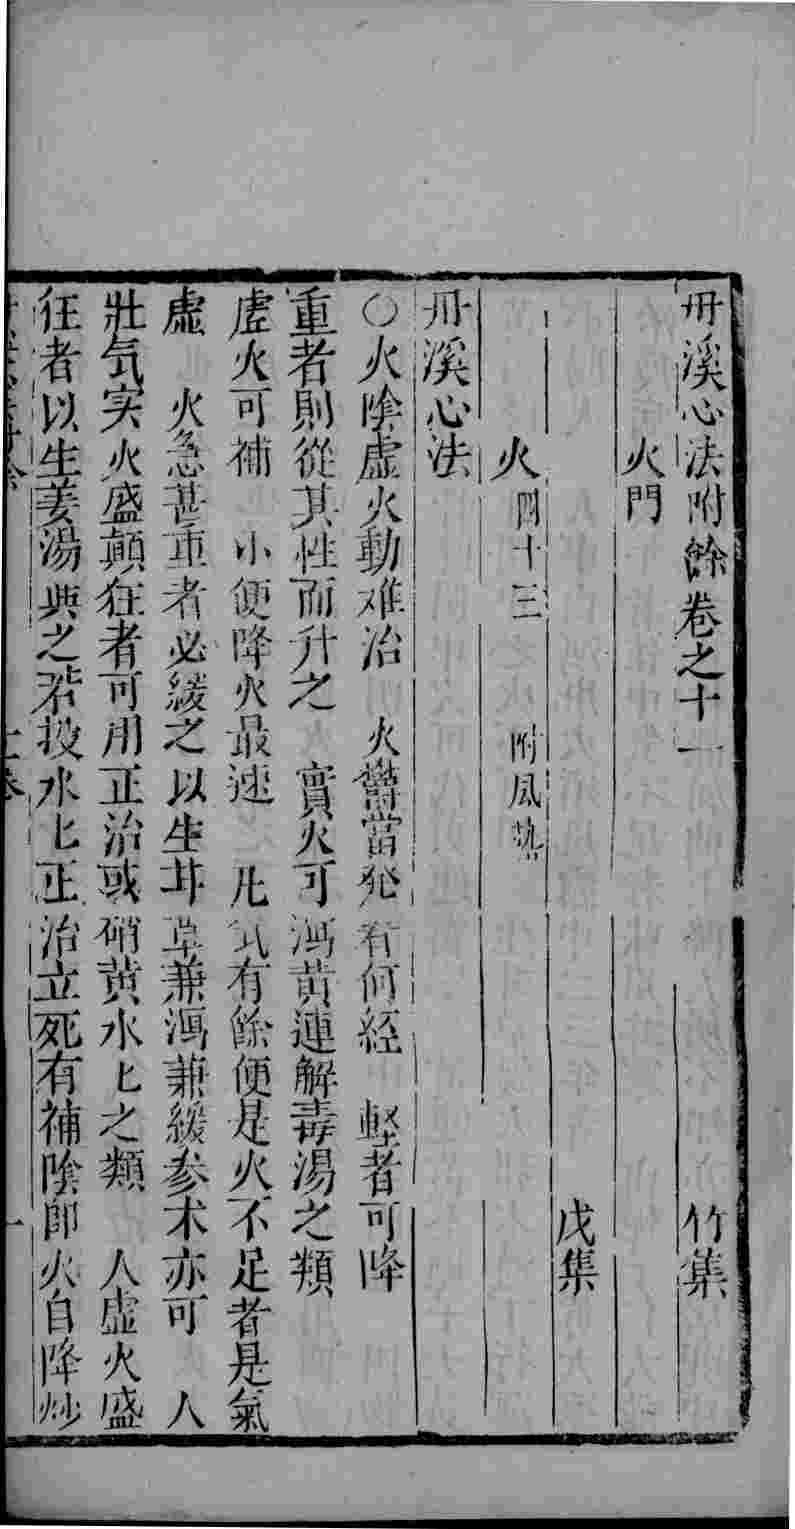 丹溪心法附餘卷之十一　竹集
火門
戊集
火四十三　附風熱
丹溪心法
○火陰虛火動难治　火鬱當發看何經　輕者可降
重者則從其性而升之　實火可瀉黃連解毒湯之類
虛火可補　小便降火最速　凡气有餘便是火不足者是氣
虛　火急甚重者必緩之以生甘草兼瀉兼緩参术亦可　人
壯气实火盛顛狂者可用正治或硝黄水之類　人虛火盛
狂者以生姜湯與之若投水正治立死有補陰即火自降炒